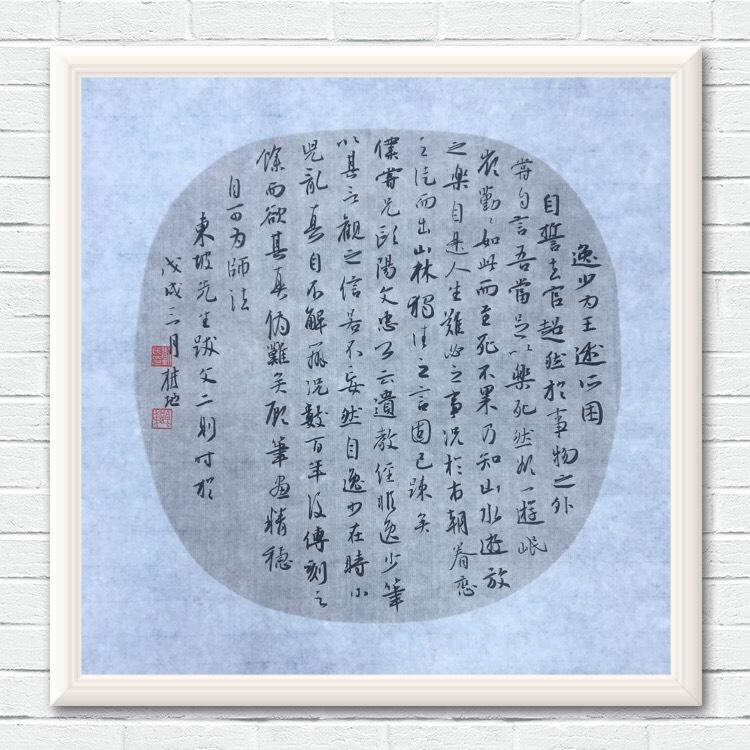 逸少为王述所困
自誓去官超然於事物之外
嘗自言吾當卒以樂死然欲一遊岷
嶺勤々如此而至死不果乃知山水遊放
之樂自是人生難必之事况於市朝眷恋
之徒而出山林獨往之言固已疎矣
僕嘗見歐陽文忠公云遺教經非逸少筆
以其言觀之信若不妄然自逸少在時小
兒亂真自不解辨况數百年後傳刻之
餘而欲其真偽難矣顧筆画精穩
自可为師法
東坡先生跋文二則时於
戊戌三月